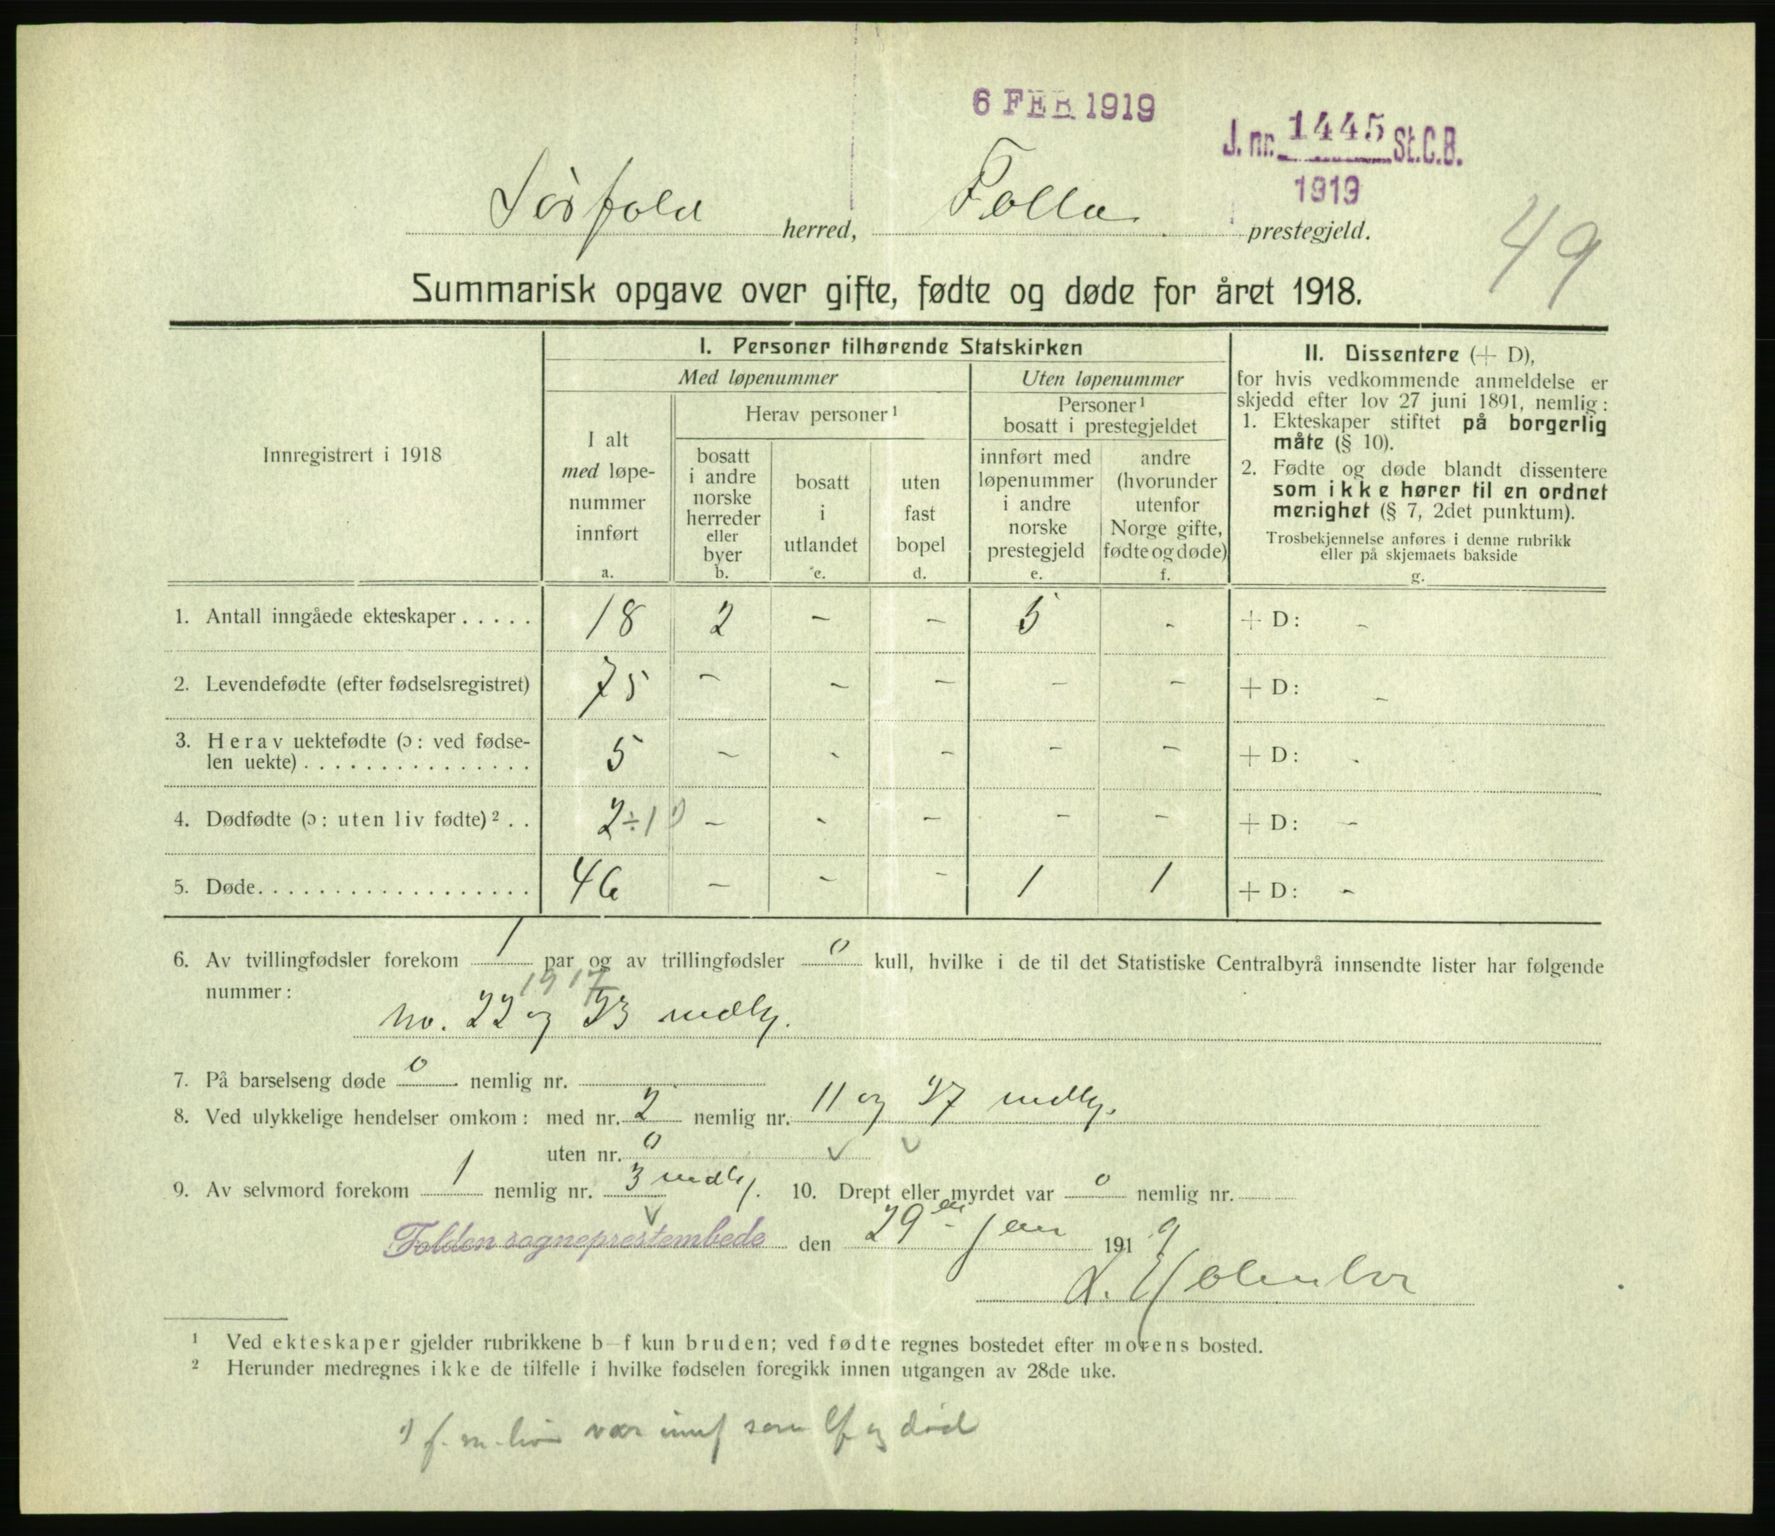 6 FEB 1919
J. nr. 1445 St.C.B.
1919
Sörfold herred, Folla prestegjeld.
49
Summarisk opgave over gifte, fødte og døde for året 1918.
Innregistrert i 1918
I. Personer tilhørende Statskirken
Med løpenummer
Uten løpenummer
I alt
med løpe-
nummer
innført
a.
Herav personer ¹
bosatt
i andre
norske
herreder
eller
byer
b.
bosatt
i
utlandet
c.
uten
fast
bopel
d.
Personer ¹
bosatt i prestegjeldet
innført med
løpenummer
i andre
norske
prestegjeld
e.
andre
(hvorunder
utenfor
Norge gifte,
fødte og døde)
f.
II. Dissentere (+ D),
for hvis vedkommende anmeldelse er
skjedd efter lov 27 juni 1891, nemlig:
1. Ekteskaper stiftet på borgerlig
måte (§ 10).
2. Fødte og døde blandt dissentere
som ikke hører til en ordnet
menighet (§ 7, 2det punktum).
Trosbekjennelse anføres i denne rubrikk
eller på skjemaets bakside
g.
1. Antall inngåede ekteskaper ..... 18 2 – – 5 - + D: –
2. Levendefødte (efter fødselsregistret) 75 – – – – – + D: –
3. Herav uektefødte (ɔ: ved fødse-
len uekte) ............... 5 – - – – – + D: -
4. Dødfødte (ɔ: uten liv fødte) ² .. 2÷1 ¹) – - – – – + D: –
5. Døde .................. 46 – – – 1 1 + D: –
6. Av tvillingfødsler forekom 1 par og av trillingfødsler 0 kull, hvilke i de til det Statistiske Centralbyrå innsendte lister har følgende
nummer:
1917
no. 22 og 23 mdlg.
7. På barselseng døde 0 nemlig nr.
8. Ved ulykkelige hendelser omkom: med nr. 2 nemlig nr. 11 og 37 mdlg.
uten nr. 0
9. Av selvmord forekom 1 nemlig nr. 3 mdlg. 10. Drept eller myrdet var 0 nemlig nr.
Folden sogneprestembede den 29en jan 1919
L. Holmboe
¹ Ved ekteskaper gjelder rubrikkene b–f kun bruden; ved fødte regnes bostedet efter morens bosted.
² Herunder medregnes ikke de tilfelle i hvilke fødselen foregikk innen utgangen av 28de uke.
¹) var innf som lf og død